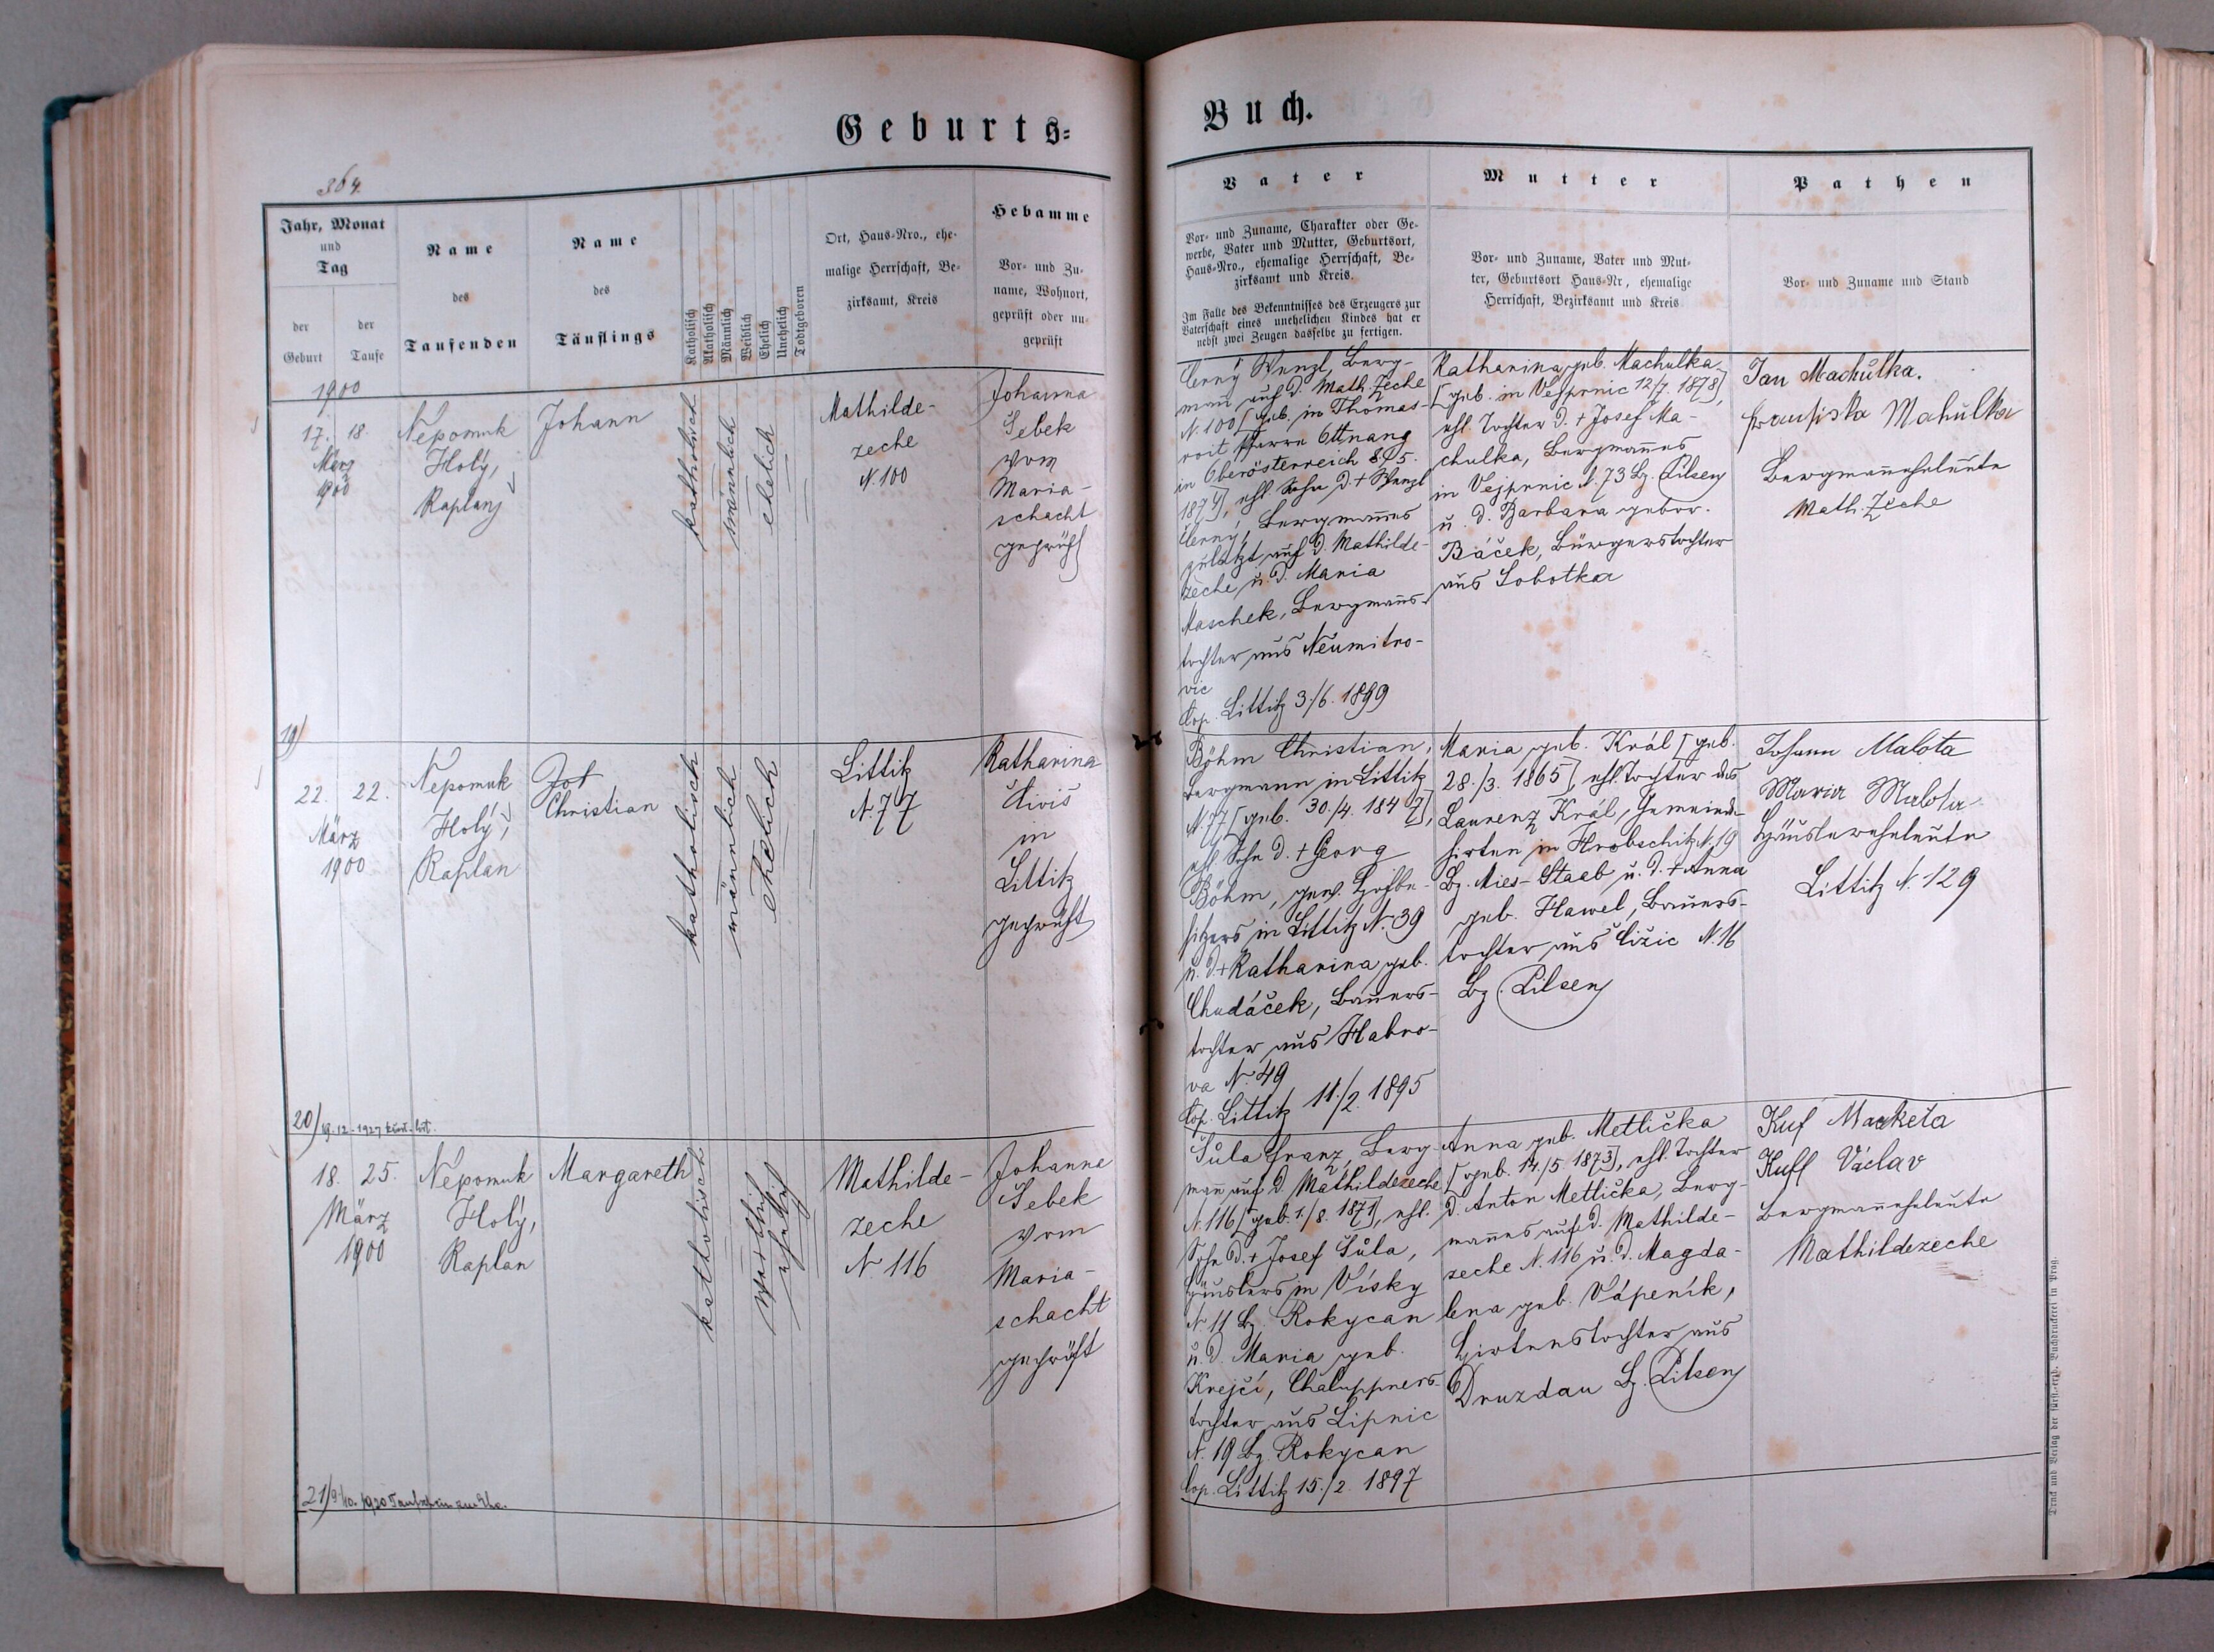 Geburts=
Buch.
364.
Jahr, Monat
und
Tag
der
Geburt
der
Taufe
Name
des
Taufenden
Name
des
Täuflings
Katholisch
Akatholisch
Männlich
Weiblich
Ehelich
Unehelich
Todtgeboren
Ort, Haus-Nro., ehe-
malige Herrschaft, Be-
zirksamt, Kreis
Hebamme
Vor- und Zu-
name, Wohnort,
geprüft oder un-
geprüft
Vater
Vor- und Zuname, Charakter oder Ge-
werbe, Vater und Mutter, Geburtsort,
Haus-Nro., ehemalige Herrschaft, Be-
zirksamt und Kreis.
Im Falle des Bekenntnisses des Erzeugers zur
Vaterschaft eines unehelichen Kindes hat er
nebst zwei Zeugen dasselbe zu fertigen.
Mutter
Vor- und Zuname, Vater und Mut-
ter, Geburtsort Haus-Nr, ehemalige
Herrschaft, Bezirksamt und Kreis
Pathen
Vor- und Zuname und Stand
1900
17. 18.
März
1900
Nepomuk
Holý,
Kaplan
Johann
katholisch
männlich
ehelich
Mathilde-
zeche
N. 100
Johanna
Šebek
vom
Maria-
schacht
geprüft
Černý Wenzl, Berg-
man auf d. Math. Zeche
N. 100 [geb. in Thomas-
roit Pfarre Ottnang
in Oberösterreich 8/5.
1874], ehl. Sohn d. + Wenzl
Černý, Bergmannes
zuletzt auf d. Mathilde-
zeche, u. d. Maria
Maschek, Bergmanns-
tochter aus Neumitro-
vic
Cop. Littitz 3./6. 1899
Katharina geb. Machulka
[geb. in Vejprnic 12/7. 1878],
ehl Tochter d. + Josef Ma-
chulka, Bergmannes
in Vejprnic N. 73 Bz. Pilsen
u. d. Barbara gebor.
Báček, Bürgerstochter
aus Sobotka
Jan Machulka.
Františka Mahulka
Bergmanneheleute
Math. Zeche
19/
22. 22.
März
1900
Nepomuk
Holý,
Kaplan
Jos
Christian
katholisch
männlich
ehelich
Littitz
N. 77
Katharina
Diviš
in
Littitz
geprüft
Böhm Christian,
Bergmann in Littitz
N. 77 [geb. 30./4. 1847],
ehl. Sohn d. + Georg
Böhm, gew. Hofbe-
sitzers in Littitz N. 39
u. d. + Katharina geb.
Chudáček, Bauers-
tochter aus Habro-
va N. 49
Cop. Littitz 11./2. 1895
Maria geb. Král [geb.
28./3. 1865], ehl. Tochter des
Laurenz Král, Gemeinde-
hirten in Hrobschitz N. 19
Bz. Mies-Staab u. d. + Anna
geb. Hawel, Bauers-
tochter aus Čižic N. 16
Bz. Pilsen
Johann Malota
Maria Malota
Häuslereheleute
Littitz N. 129
20/ 19.-12-1927
18. 25.
März
1900
Nepomuk
Holý,
Kaplan
Margareth
katholisch
weiblich
ehelich
Mathilde-
zeche
N. 116
Johanne
Šebek
vom
Maria-
schacht
geprüft
Šůla Franz, Berg
mann auf d. Mathildezeche
N. 116 [geb. 1./8. 1871], ehl.
Sohn d. + Josef Šůla,
Häuslers in Vísky
N. 11 Bz. Rokycan
u. d. Maria geb.
Krejčí, Chaluppners-
tochter aus Lipnic
N. 19 Bz. Rokycan
Cop. Littitz 15./2. 1897
Anna geb. Metlička
[geb. 14./5. 1873], ehl. Tochter
d. Anton Metlička, Berg-
mannes auf d. Mathilde-
zeche N. 116 u. d. Magda-
lena geb. Vápeník,
Hirtenstochter aus
Druzdau Bz. Pilsen
Kuf Marketa
Kuff Václav
Bergmanneheleute
Mathildezeche
21/ 9./10. 1920 Taufschein zur Ehe.
Druck und Verlag der fürst.-erzb. Buchdruckerei in Prag.